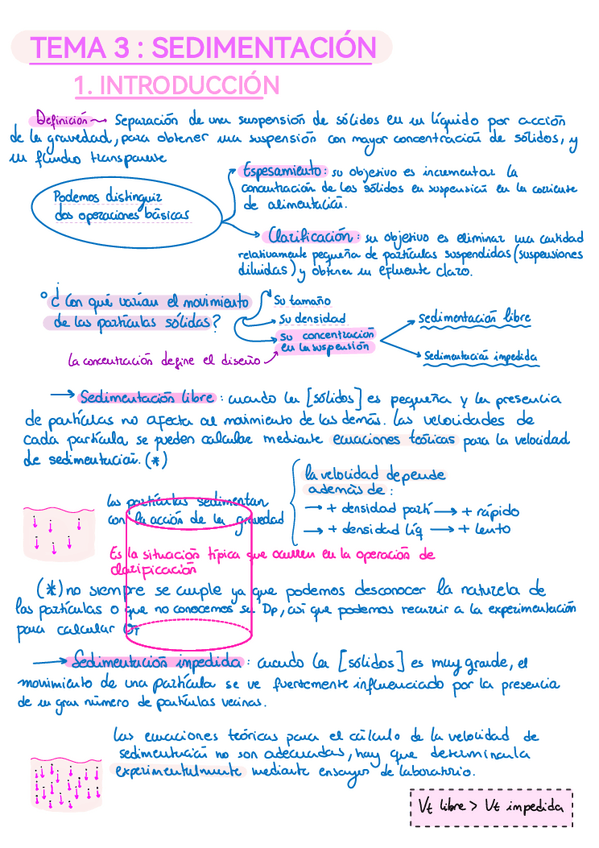 TEMA 3 : SEDIMENTACIÓN
1. INTRODUCCIÓN
Definición → Separación de una suspensión de sólidos en un líquido por acción
de la gravedad, para obtener una suspensión con mayor concentración de sólidos, y
un fluido transparente
Podemos distinguir
dos operaciones básicas
Espesamiento: su objetivo es incrementar la
concentración de los sólidos en suspensión en la corriente
de alimentación.
Clarificación: su objetivo es eliminar una cantidad
relativamente pequeña de partículas suspendidas (suspensiones
diluidas) y obtener un efluente claro.
¿Con qué varían el movimiento
de las partículas sólidas?
Su tamaño
Su densidad
Su concentración
en la suspensión
sedimentación libre
Sedimentación impedida
La concentración define el diseño
→ Sedimentación libre: cuando la [sólidos] es pequeña y la presencia
de partículas no afecta al movimiento de las demás. Las velocidades de
cada partícula se pueden calcular mediante ecuaciones teóricas para la velocidad
de sedimentación. (*)
Las partículas sedimentan
con la acción de la gravedad
la velocidad depende
además de:
→ + densidad partí → + rápido
→ + densidad líq → + lento
Es la situación típica que ocurren en la operación de
clarificación
(*) no siempre se cumple ya que podemos desconocer la naturaleza de
las partículas o que no conocemos su Dp, así que podemos recurrir a la experimentación
para calcular
→ Sedimentación impedida: cuando la [sólidos] es muy grande, el
movimiento de una partícula se ve fuertemente influenciado por la presencia
de un gran número de partículas vecinas.
Las ecuaciones teóricas para el cálculo de la velocidad de
sedimentación no son adecuadas, hay que determinarla
experimentalmente mediante ensayos de laboratorio.
Vt libre > Vt impedida